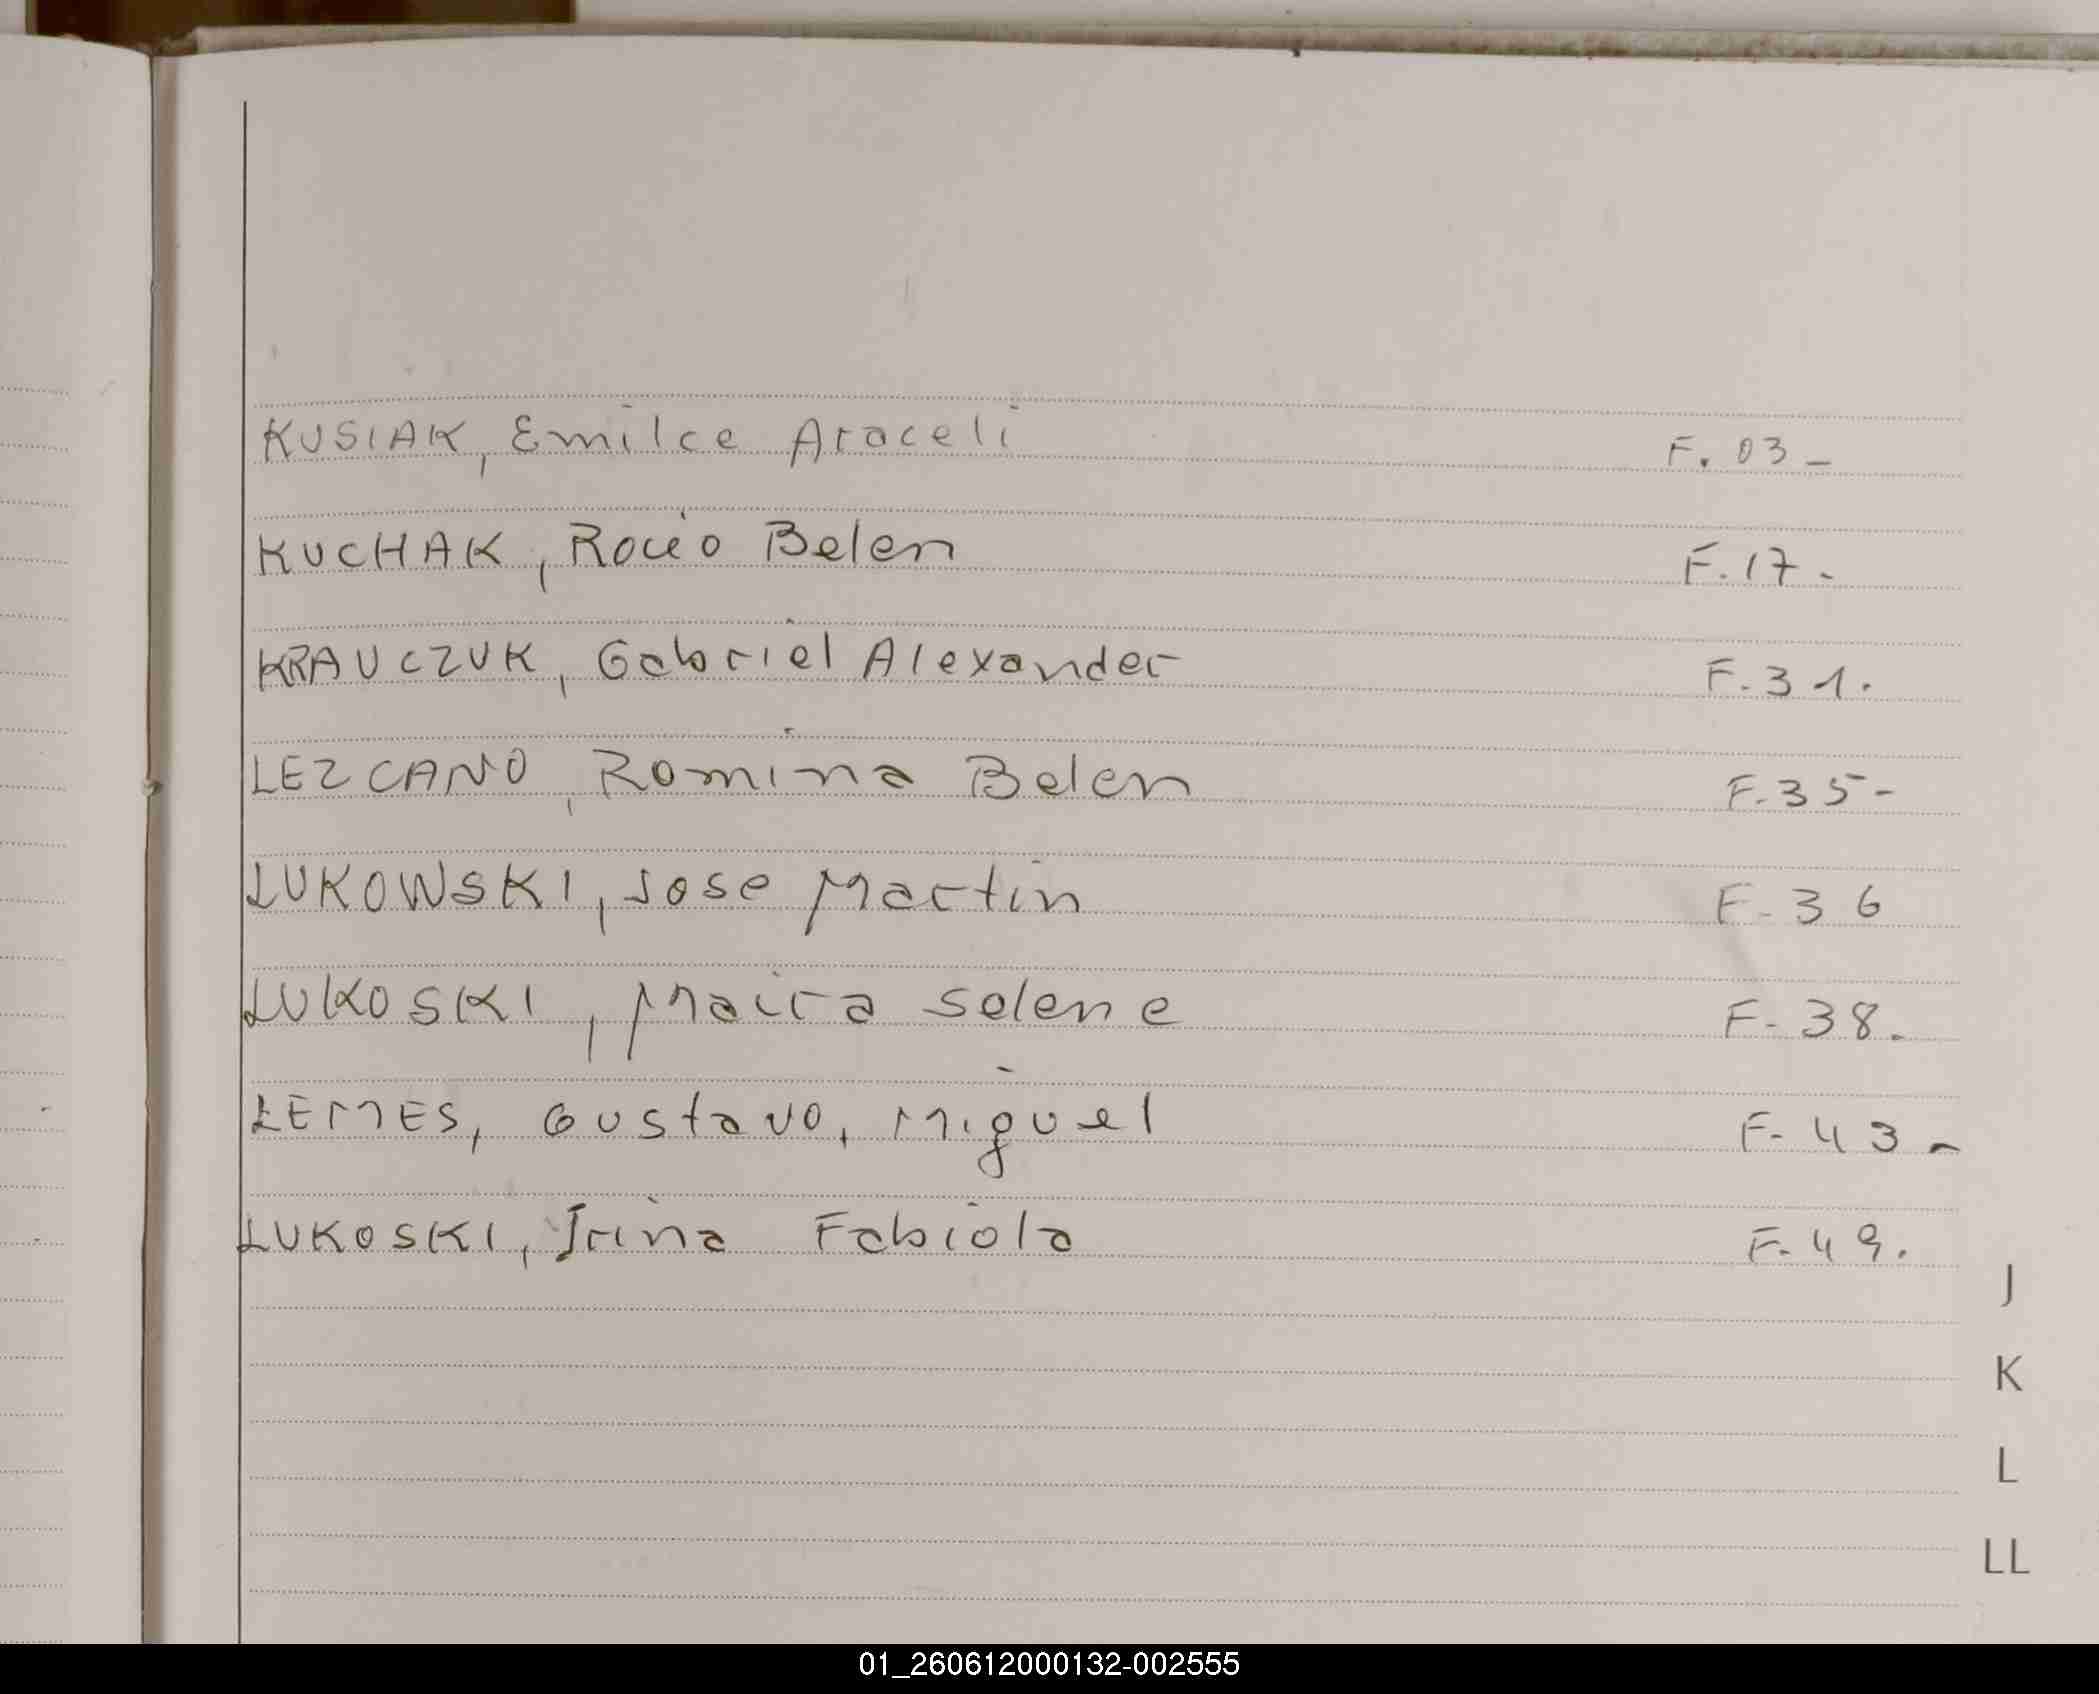 KUSIAK, Emilce Araceli F. 03 -
KUCHAK, Rocio Belen F. 17.
KRAUCZUK, Gabriel Alexander F. 31.
LEZCANO, Romina Belen F. 35-
LUKOWSKI, Jose Martin F. 36
LUKOSKI, Maira Selene F- 38.
LEMES, Gustavo, Miguel F- 43 -
LUKOSKI, Irina Fabiola F. 49.
J
K
L
LL
01_260612000132-002555